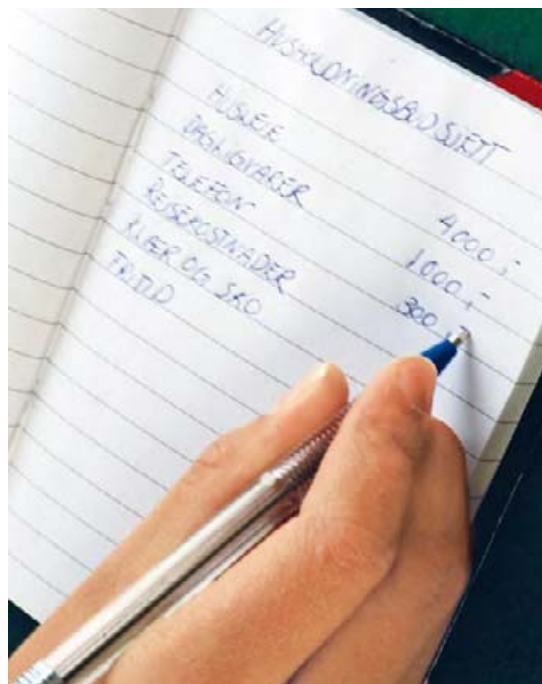 HUSHOLDNINGSBUDSJETT
HUSLEIE 4000,-
DAGLIGVARER 1000,-
TELEFON 300,-
REISEKOSTNADER
KLÆR OG SKO
FRITID